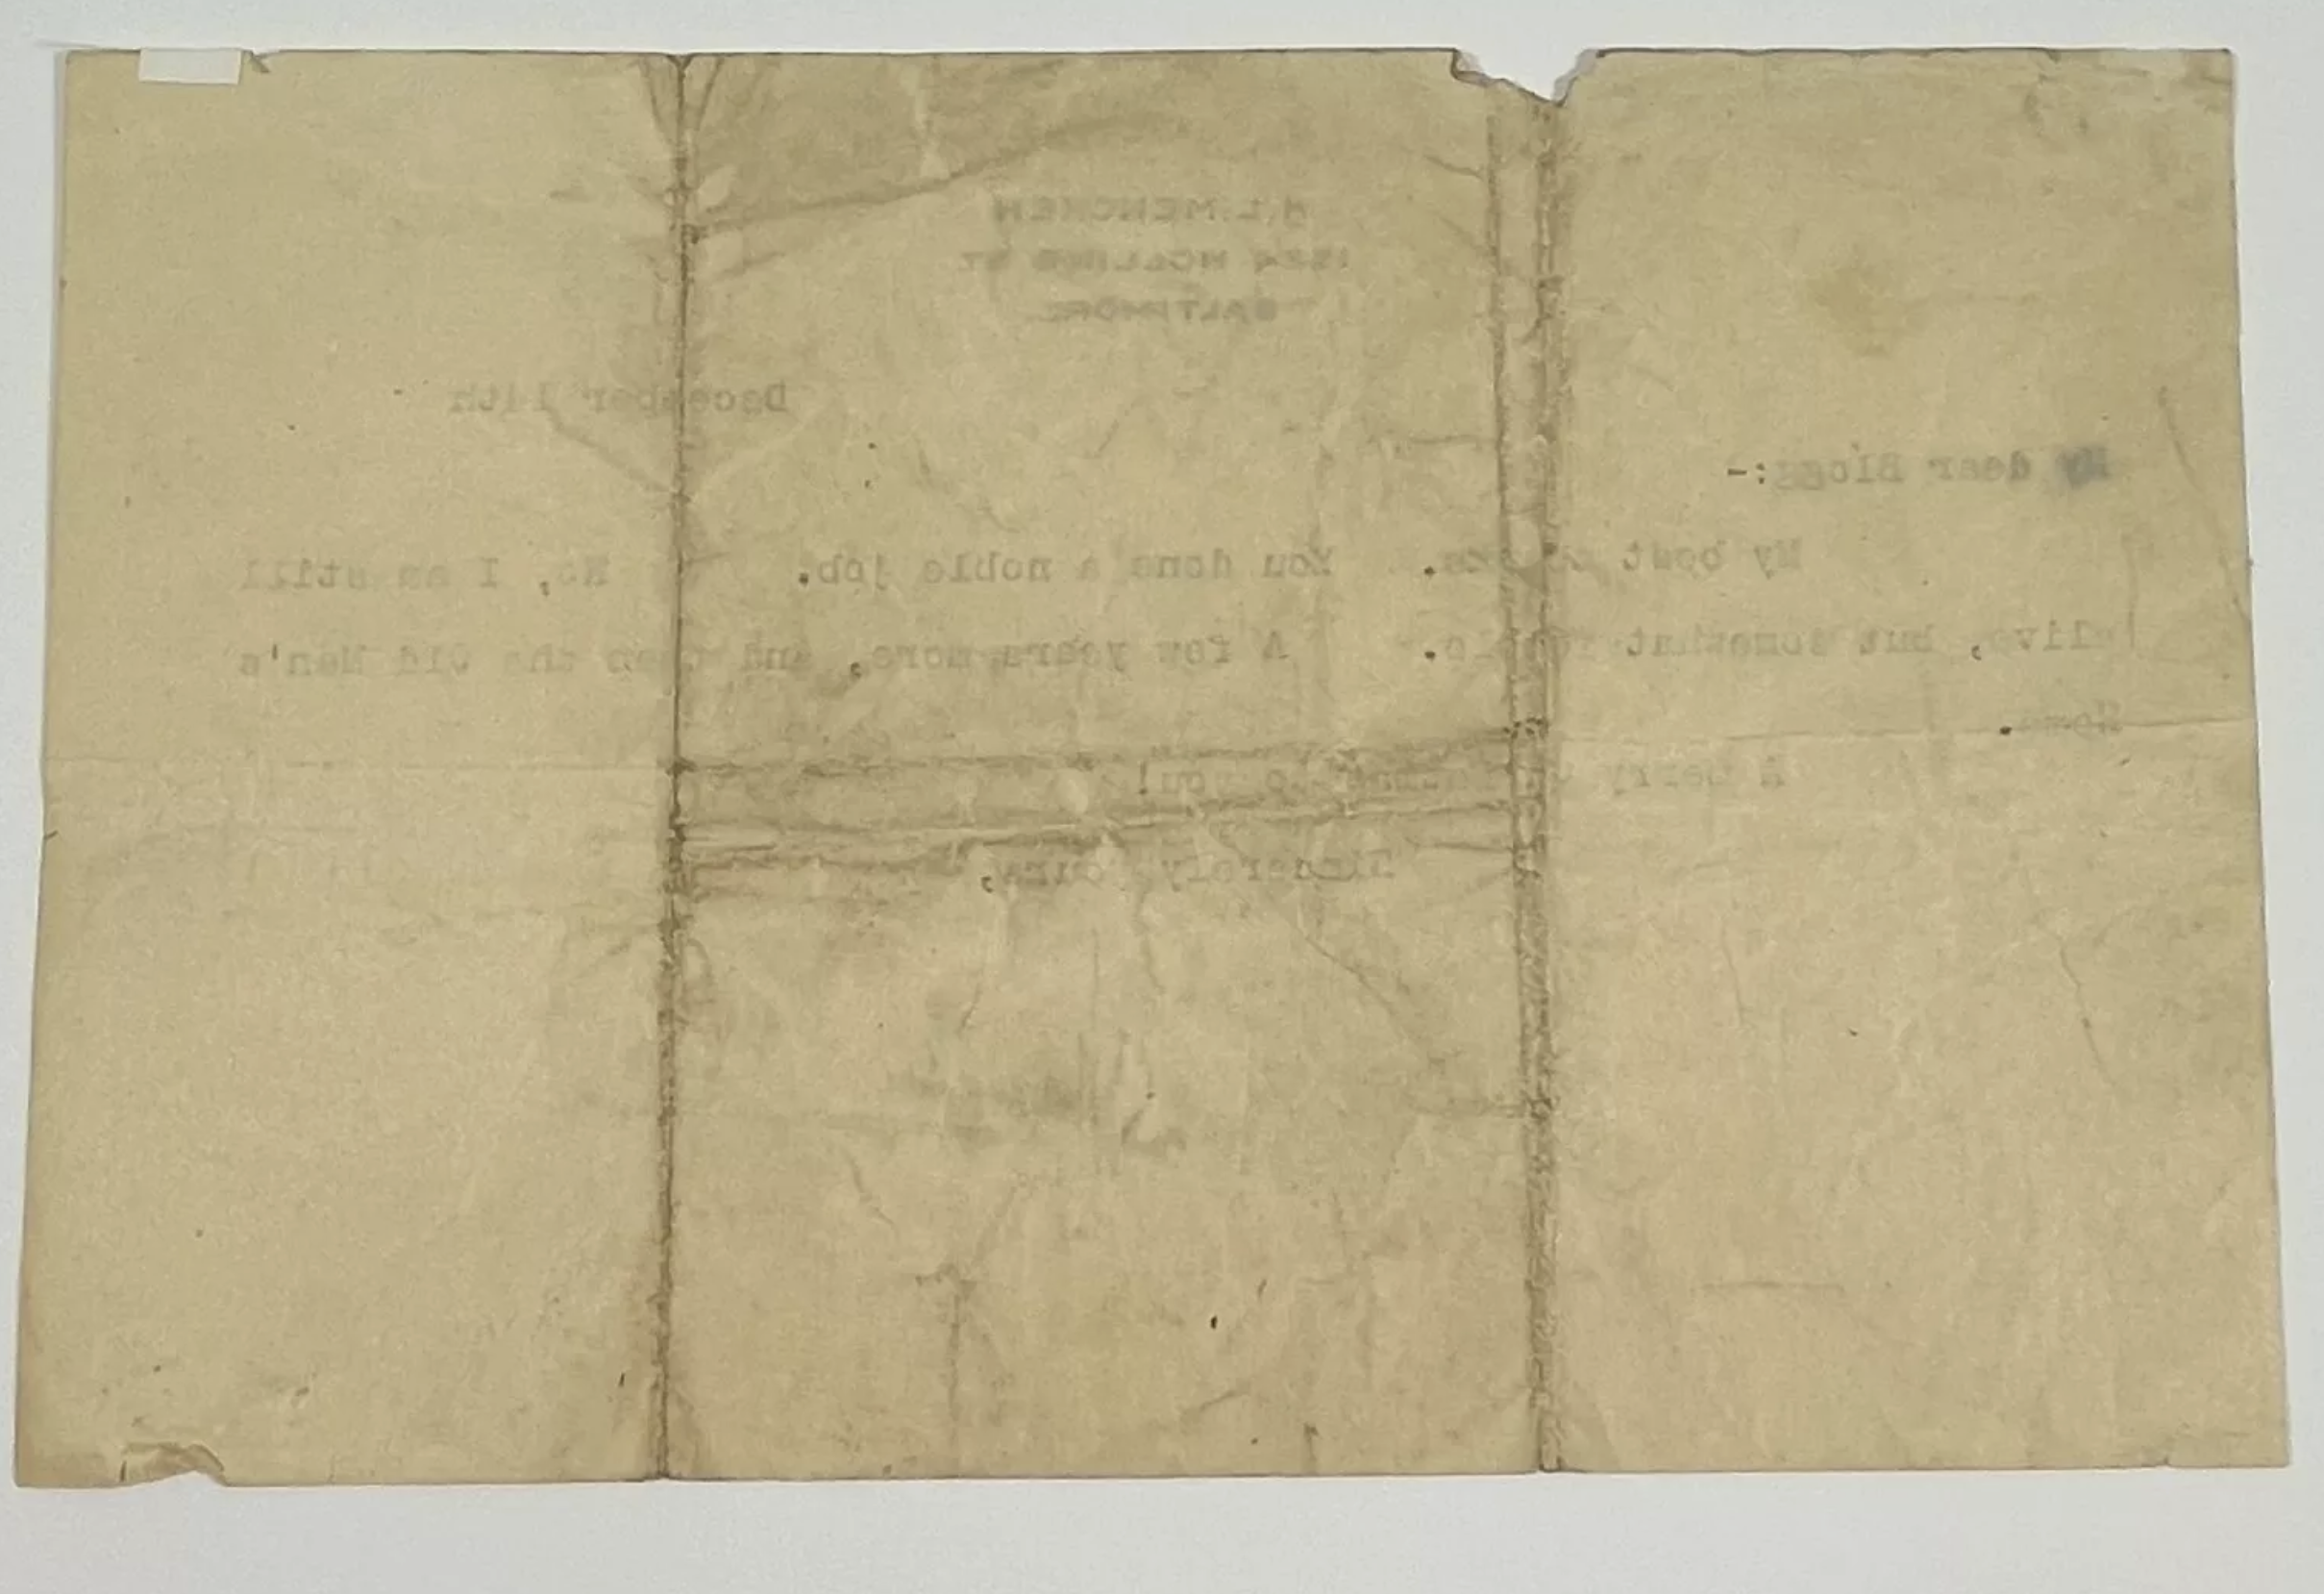 H.L. MENCKEN
1524 HOLLINS ST
BALTIMORE
December 14th
My dear Blogg:-
My best thanks. You done a noble job. No, I am still
alive, but somewhat feeble. A few years more, and then the Old Men's
Home.
A merry Christmas to you!
Sincerely yours,